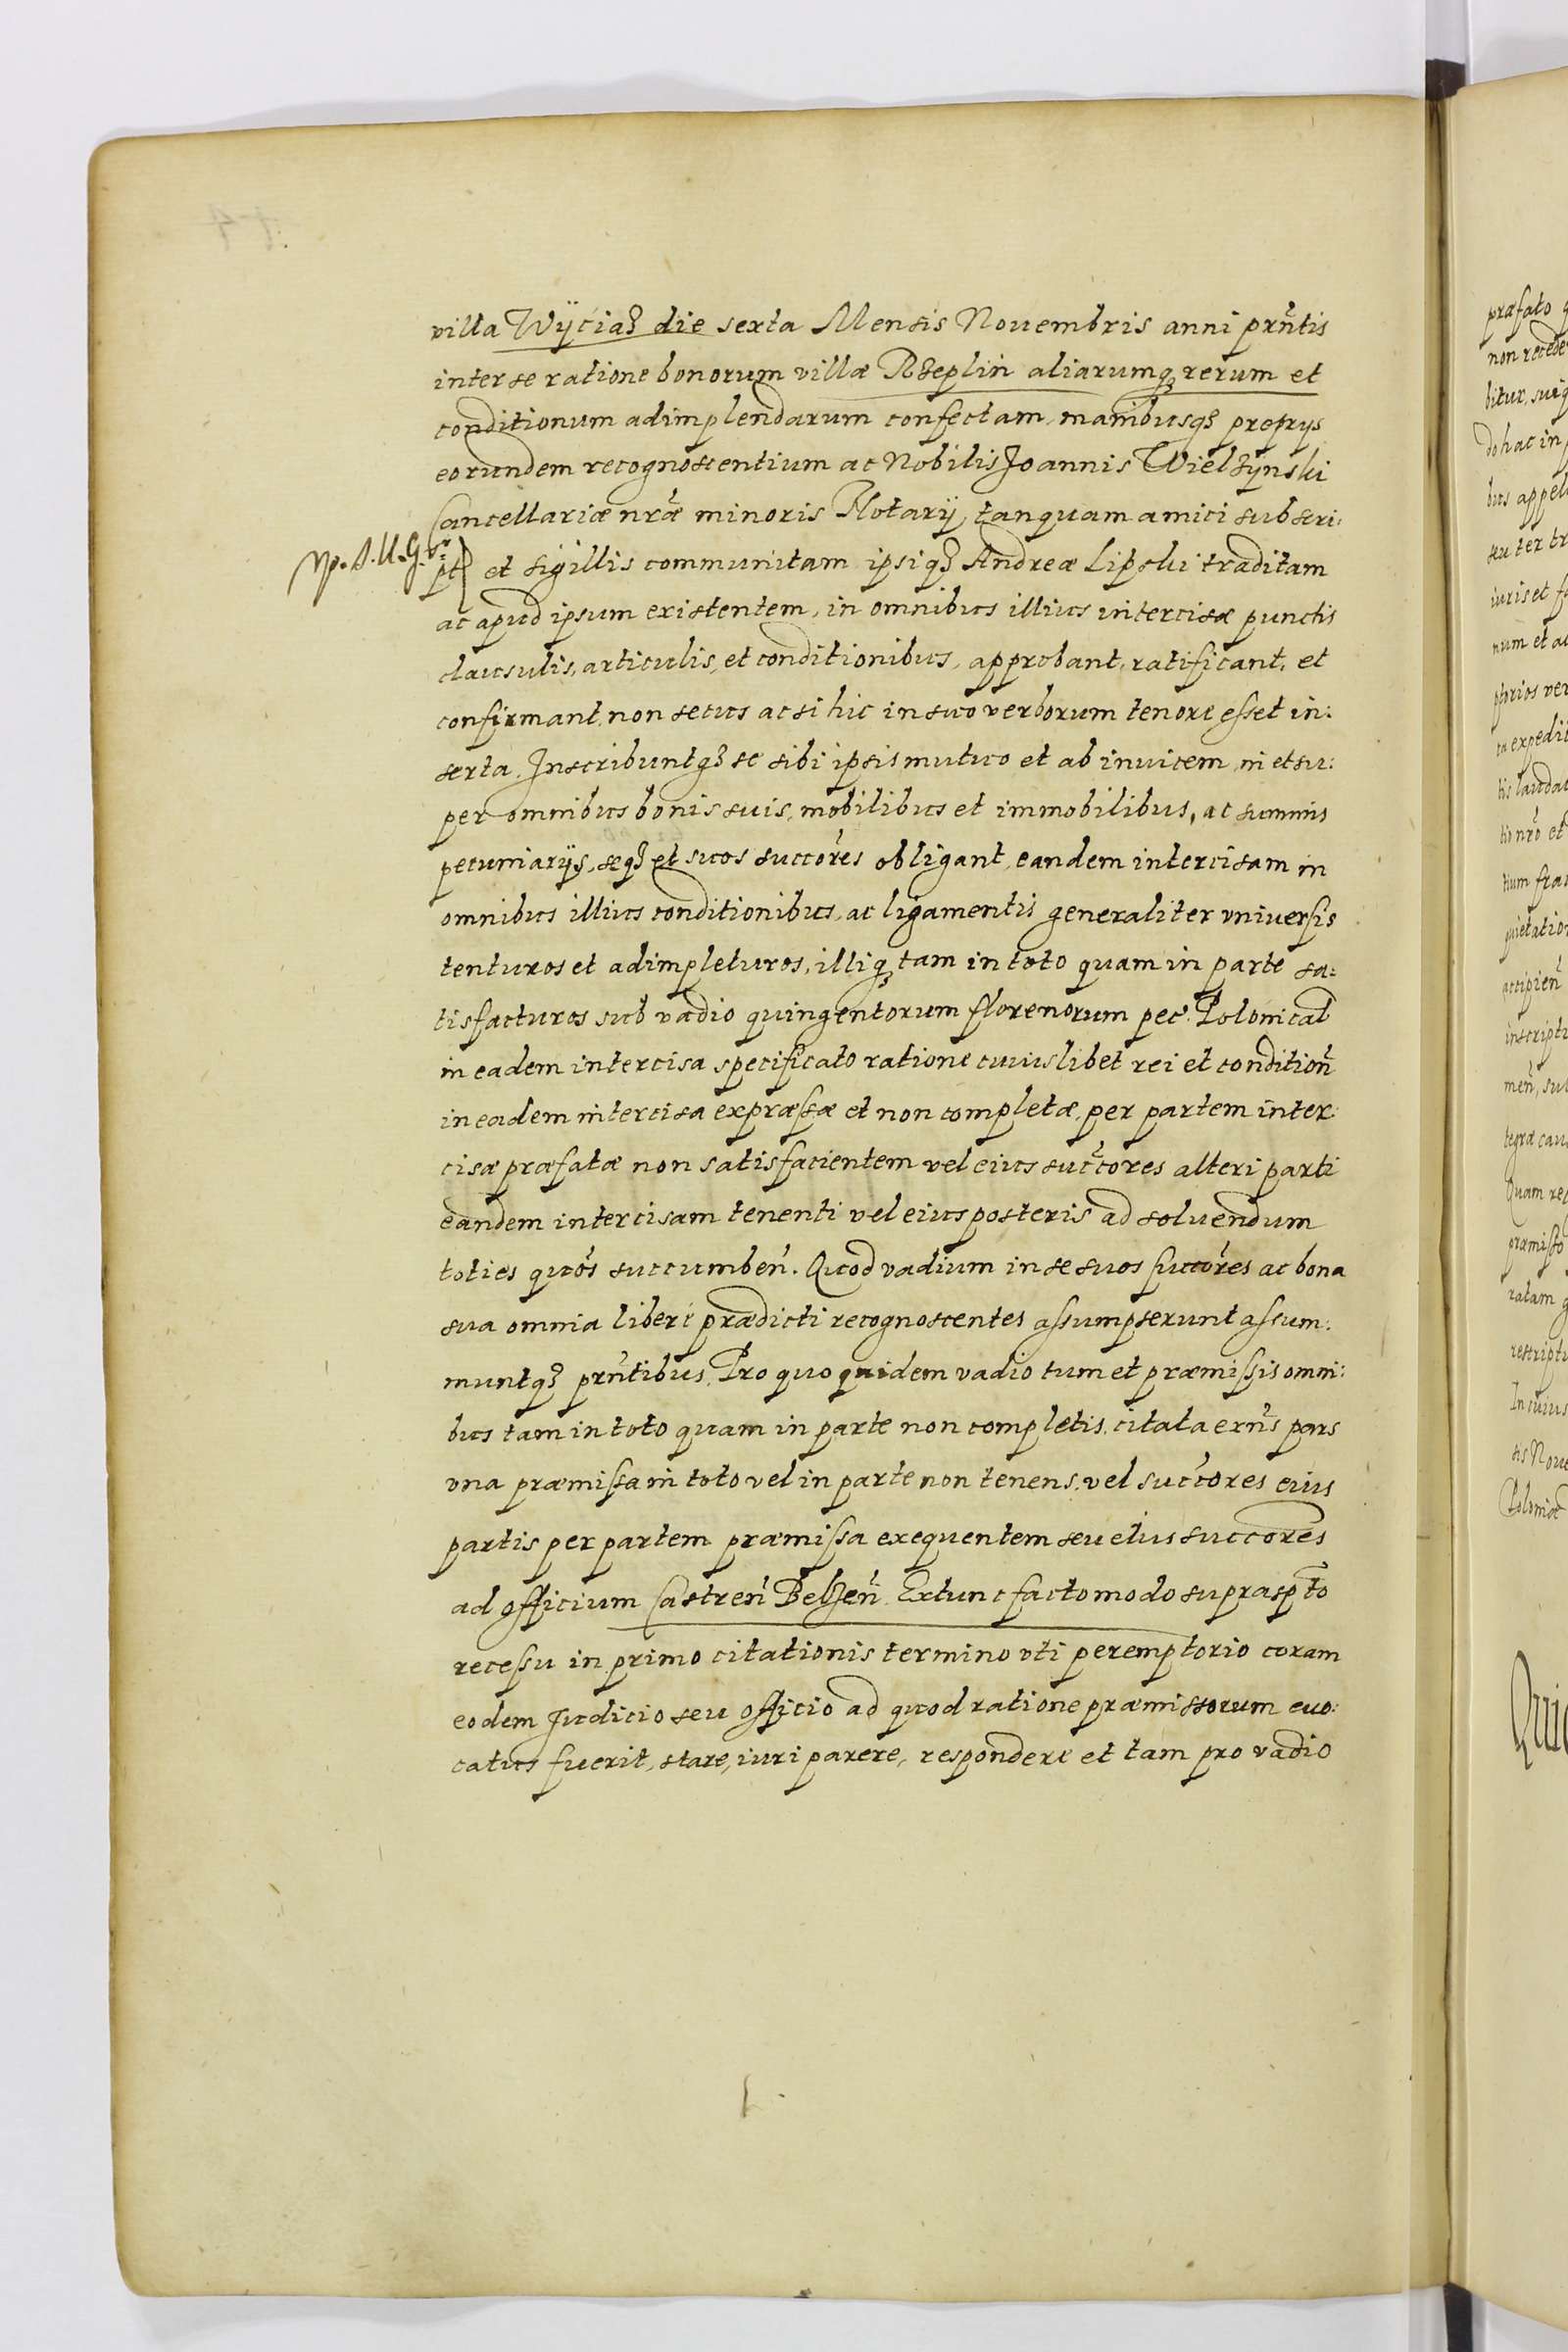 villa Wÿciaz die sexta Mensis Nouembris anni prñtis
inter se ratione bonorum villæ Rzeplin aliarumq₃ rerum et
conditionum adimplendarum confectam, manibusq₃ proprijs
eorundem recognoscentium ac Nobilis Joannis Wielżynski
Cancellariæ nr̃æ minoris Notarÿ, tanquam amici subscri:
pt et sigillis communitam ipsiq₃ Andreæ Lipski traditam
ac apud ipsum existentem, in omnibus illius intercisæ punctis
clausulis, articulis, et conditionibus, approbant, ratificant, et
confirmant, non secus ac si hic in suo verborum tenore esset in:
serta. Inscribuntq₃ se sibi ipsis mutuo et ab inuicem, in et su:
per omnibus bonis suis, mobilibus et immobilibus, ac summis
pecuniarijs, seq₃ et suos succo͂res obligant, eandem intercisam in
omnibus illius conditionibus, ac ligamentis generaliter vniuersis
tenturos et adimpleturos, illiq₃ tam in toto quam in parte sa:
tisfacturos sub vadio quingentorum florenorum pec: Polonical
in eadem intercisa specificato ratione cuiuslibet rei et condition̄
in eadem intercisa expræssæ et non completæ, per partem inter:
cisæ præfatæ non satisfacientem vel eius suc͂cores alteri parti
eandem intercisam tenenti vel eius posteris ad soluendum
toties quo͂s succumben̄. Quod vadium in se suos succo͂res ac bona
sua omnia liberè prædicti recognoscentes assumpserunt assum:
muntq₃ prñtibus. Pro quo quidem vadio tum et præmissis omni:
bus tam in toto quam in parte non completis, citata exñs pars
vna præmissa in toto vel in parte non tenens, vel suc͂cores eius
partis per partem præmissa exequentem seu eius succo͂res
ad officium Castren̄ Belzen̄. Extunc facto modo supraspto
recessu in primo citationis termino vti peremptorio coram
eodem Judicio seu officio ad quod ratione præmissorum euo:
catus fuerit, stare, iuri parere, respondere et tam pro vadio